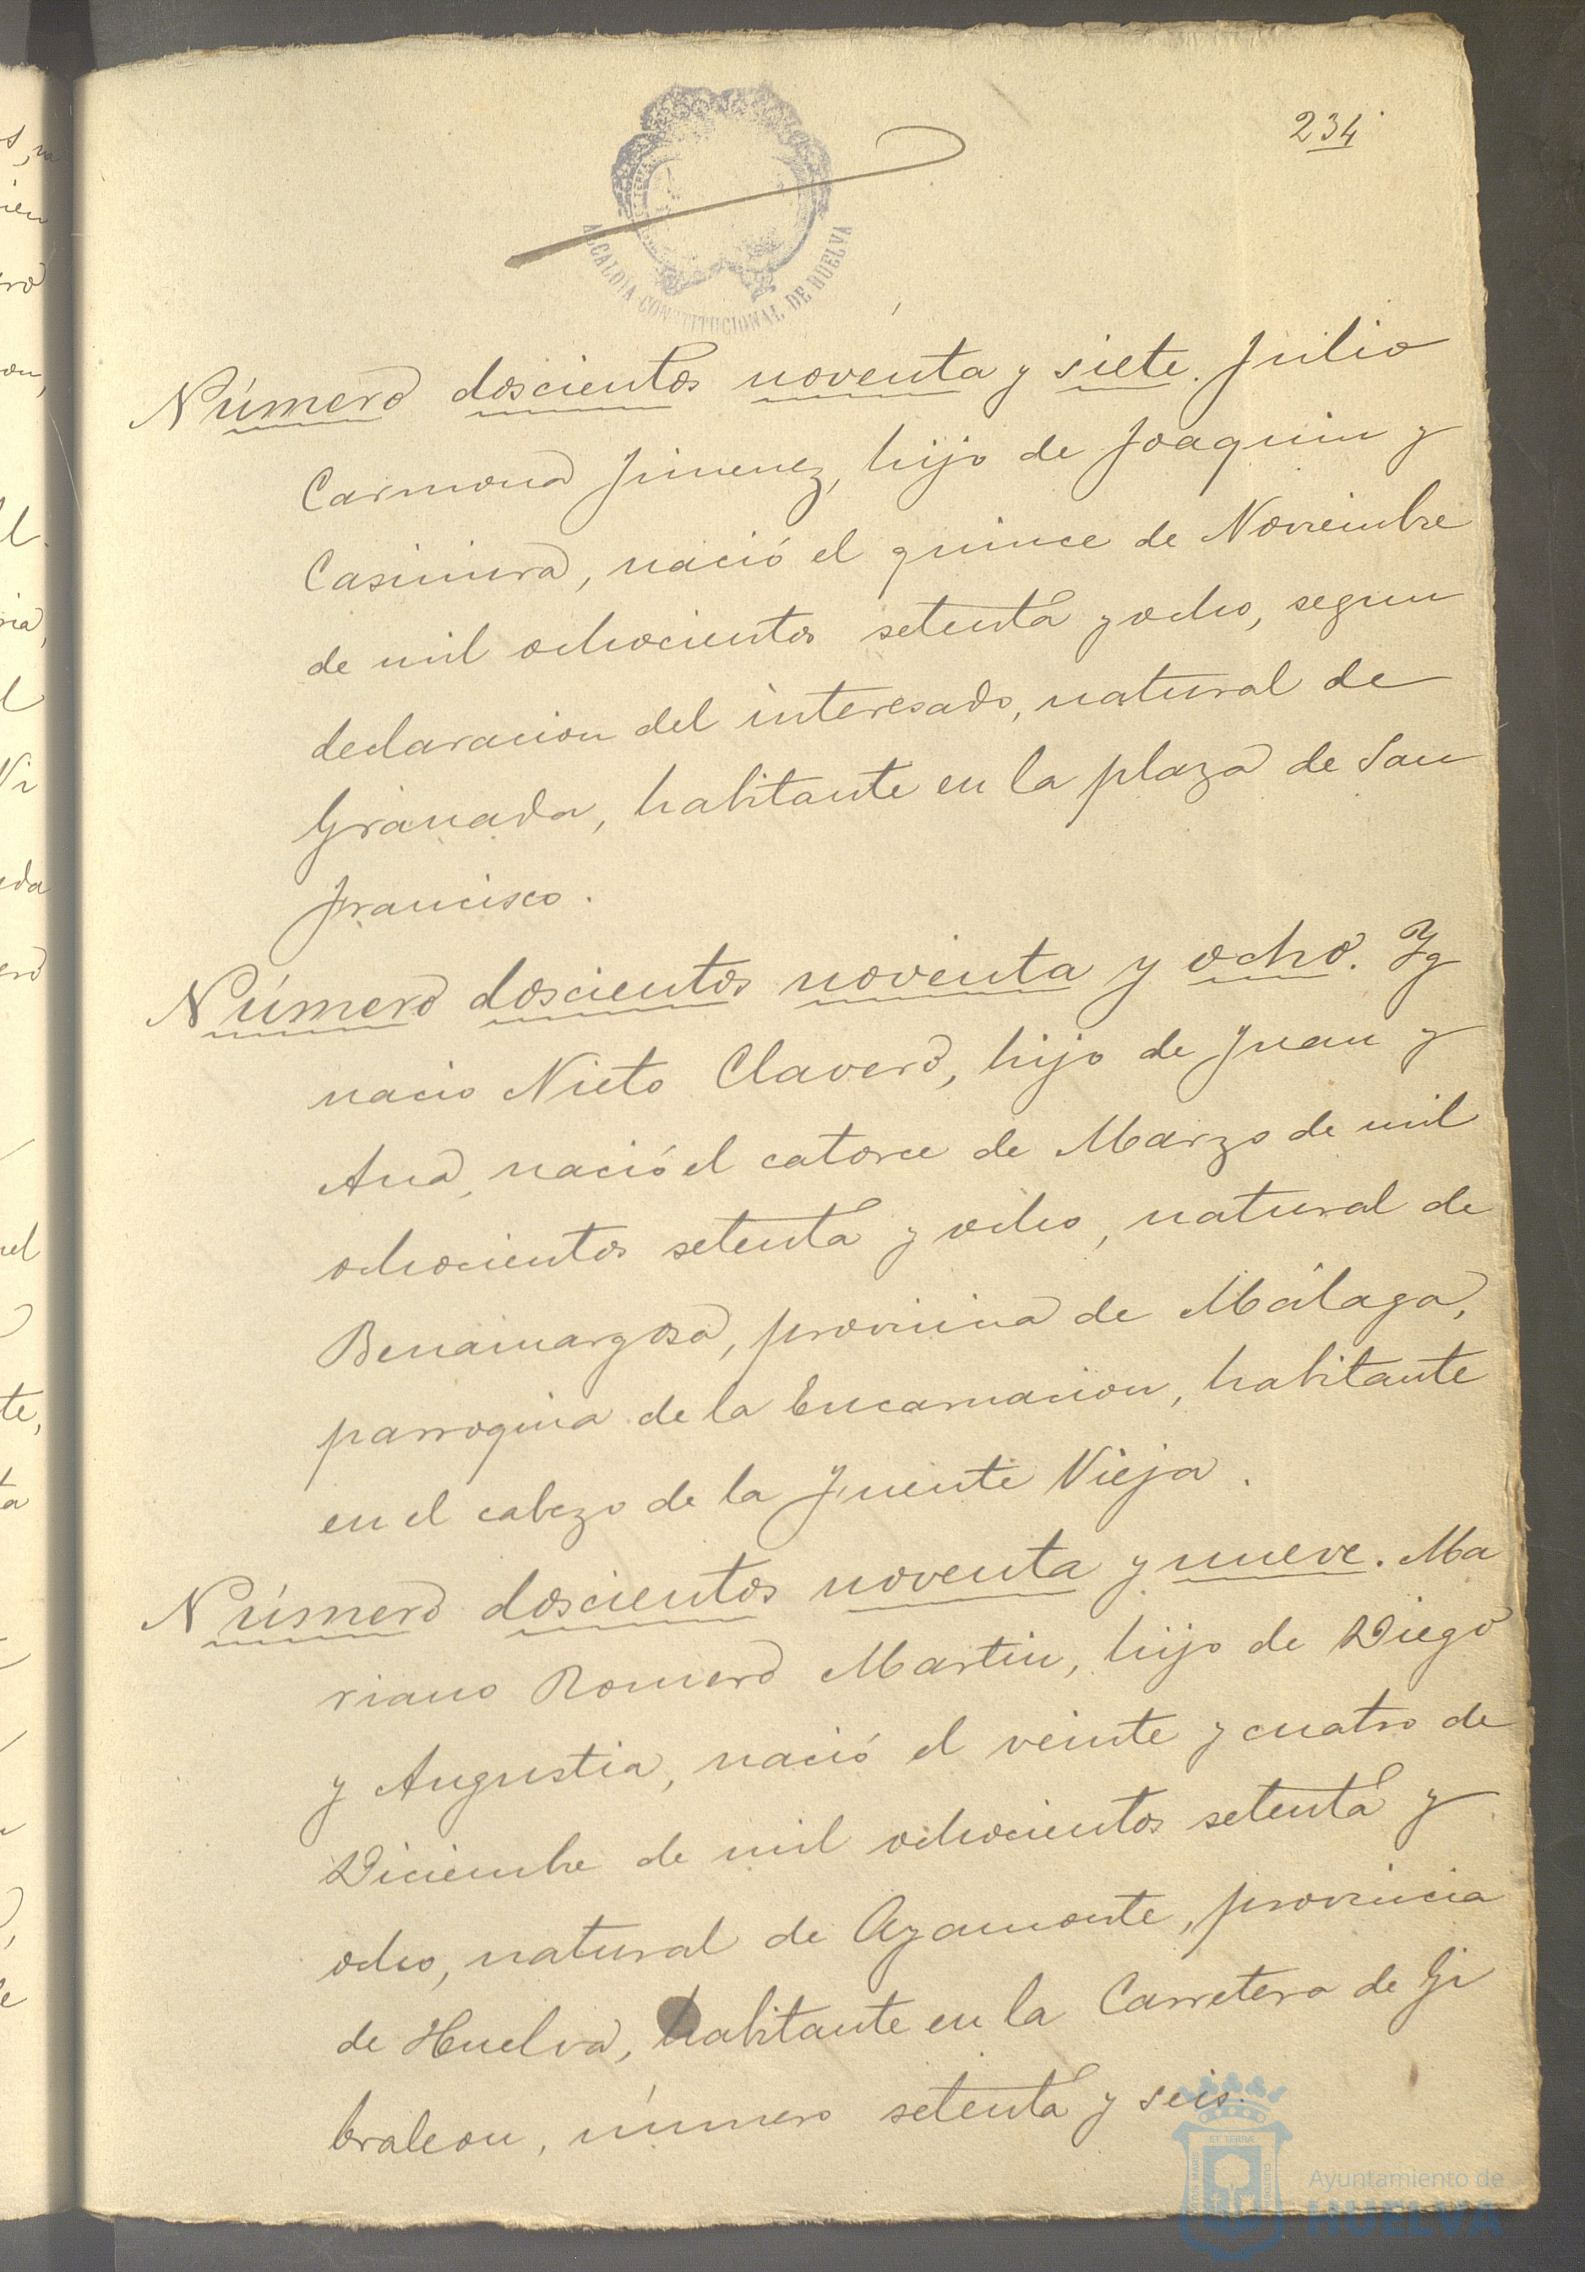 234
ALCALDIA CONSTITUCIONAL DE HUELVA
Número doscientos noventa y siete. Julio
Carmona Jimenez, hijo de Joaquin y
Casimira, nació el quince de Noviembre
de mil ochocientos setenta y ocho, segun
declaracion del interesado, natural de
Granada, habitante en la plaza de San
Francisco.
Número doscientos noventa y ocho. Yg
nacio Nieto Clavero, hijo de Juan y
Ana, nació el catorce de Marzo de mil
ochocientos setenta y ocho, natural de
Benamargosa, provincia de Málaga,
parroquia de la Encarnacion, habitante
en el cabezo de la Fuente Vieja.
Número doscientos noventa y nueve. Ma
riano Romero Martin, hijo de Diego
y Angustia, nació el veinte y cuatro de
Diciembre de mil ochocientos setenta y
ocho, natural de Ayamonte, provincia
de Huelva, habitante en la Carretera de Gi
braleon, número setenta y seis.
Ayuntamiento de
HUELVA